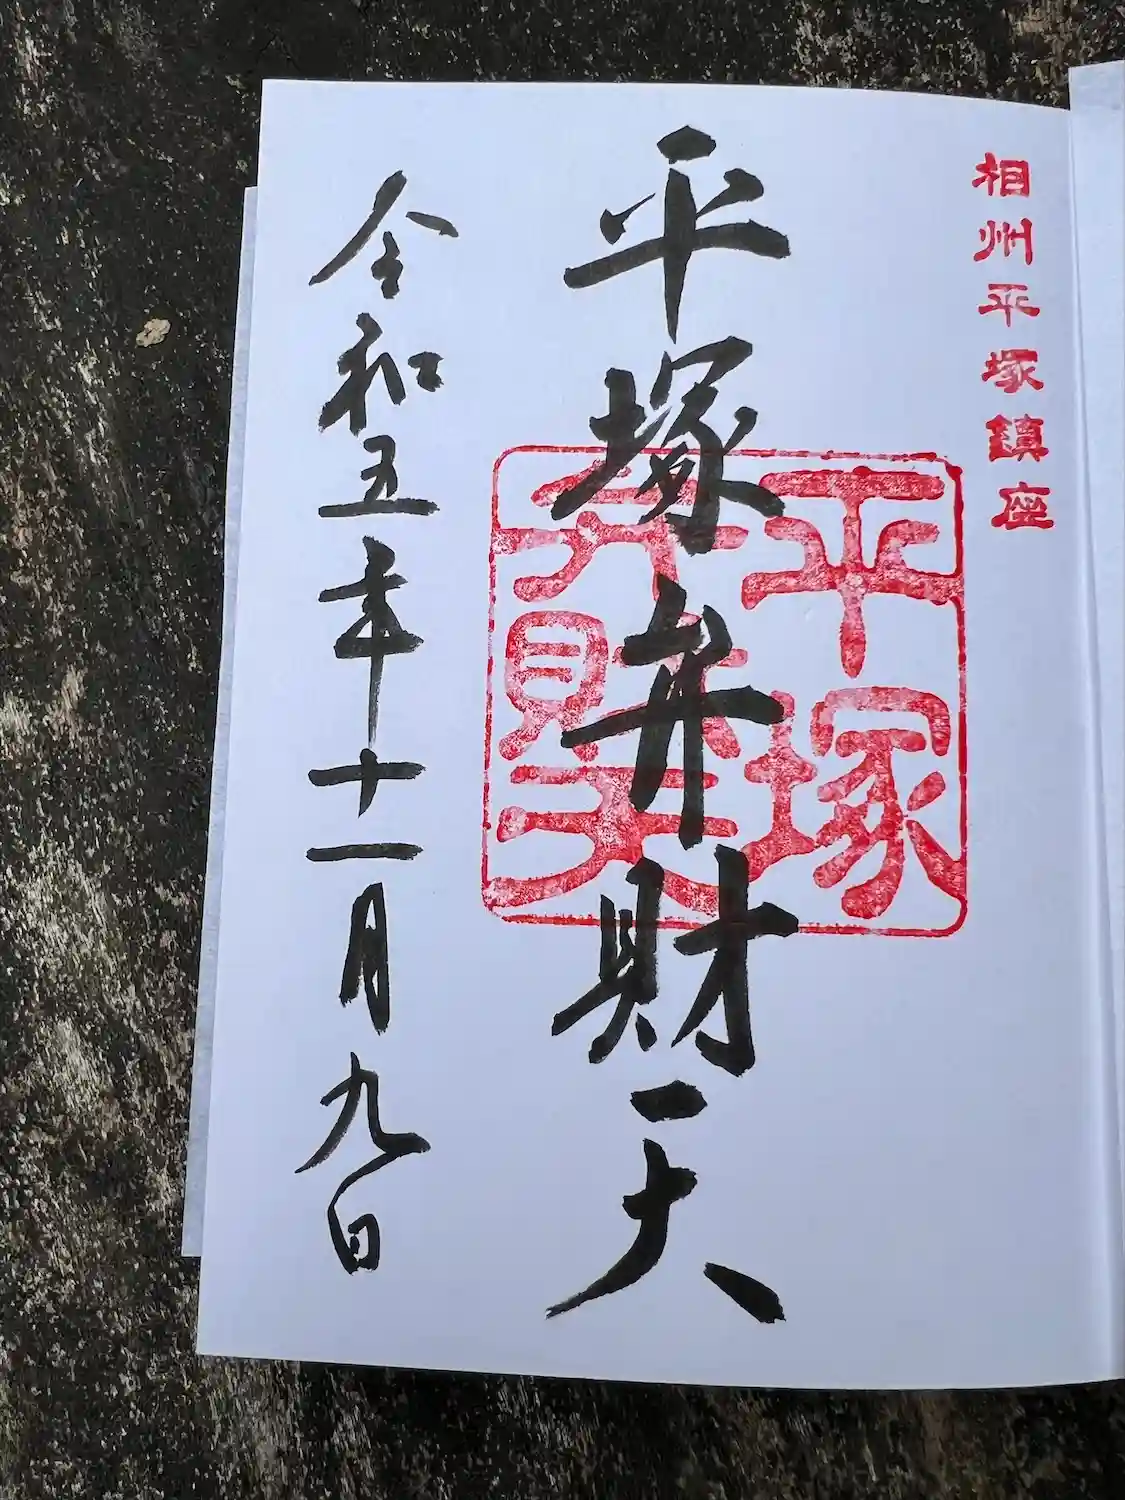 相州平塚鎮座
平塚弁財天
平塚
弁財天
令和五年十一月九日